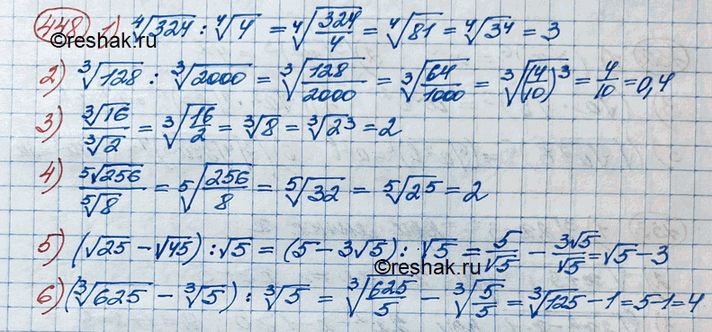 448 1) ⁴√324 : ⁴√4 = ⁴√(324/4) = ⁴√81 = ⁴√3⁴ = 3
©reshak.ru
2) ³√128 : ³√2000 = ³√(128/2000) = ³√(64/1000) = ³√(4/10)³ = 4/10 = 0,4
3) ³√16/³√2 = ³√(16/2) = ³√8 = ³√2³ = 2
4) ⁵√256/⁵√8 = ⁵√(256/8) = ⁵√32 = ⁵√2⁵ = 2
5) (√25 - √45) : √5 = (5 - 3√5) : √5 = 5/√5 - 3√5/√5 = √5 - 3
©reshak.ru
6) (³√625 - ³√5) : ³√5 = ³√(625/5) - ³√(5/5) = ³√125 - 1 = 5-1 = 4